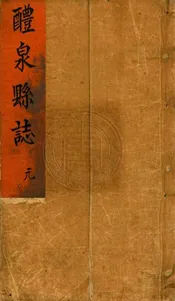 醴泉縣誌
元